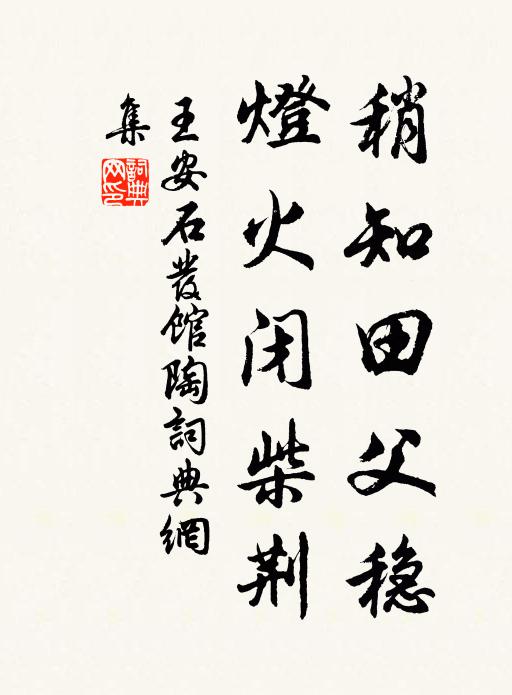 稍知田父稳
燈火闭柴荆
王安石發馆陶詞典網
集
詞典網印